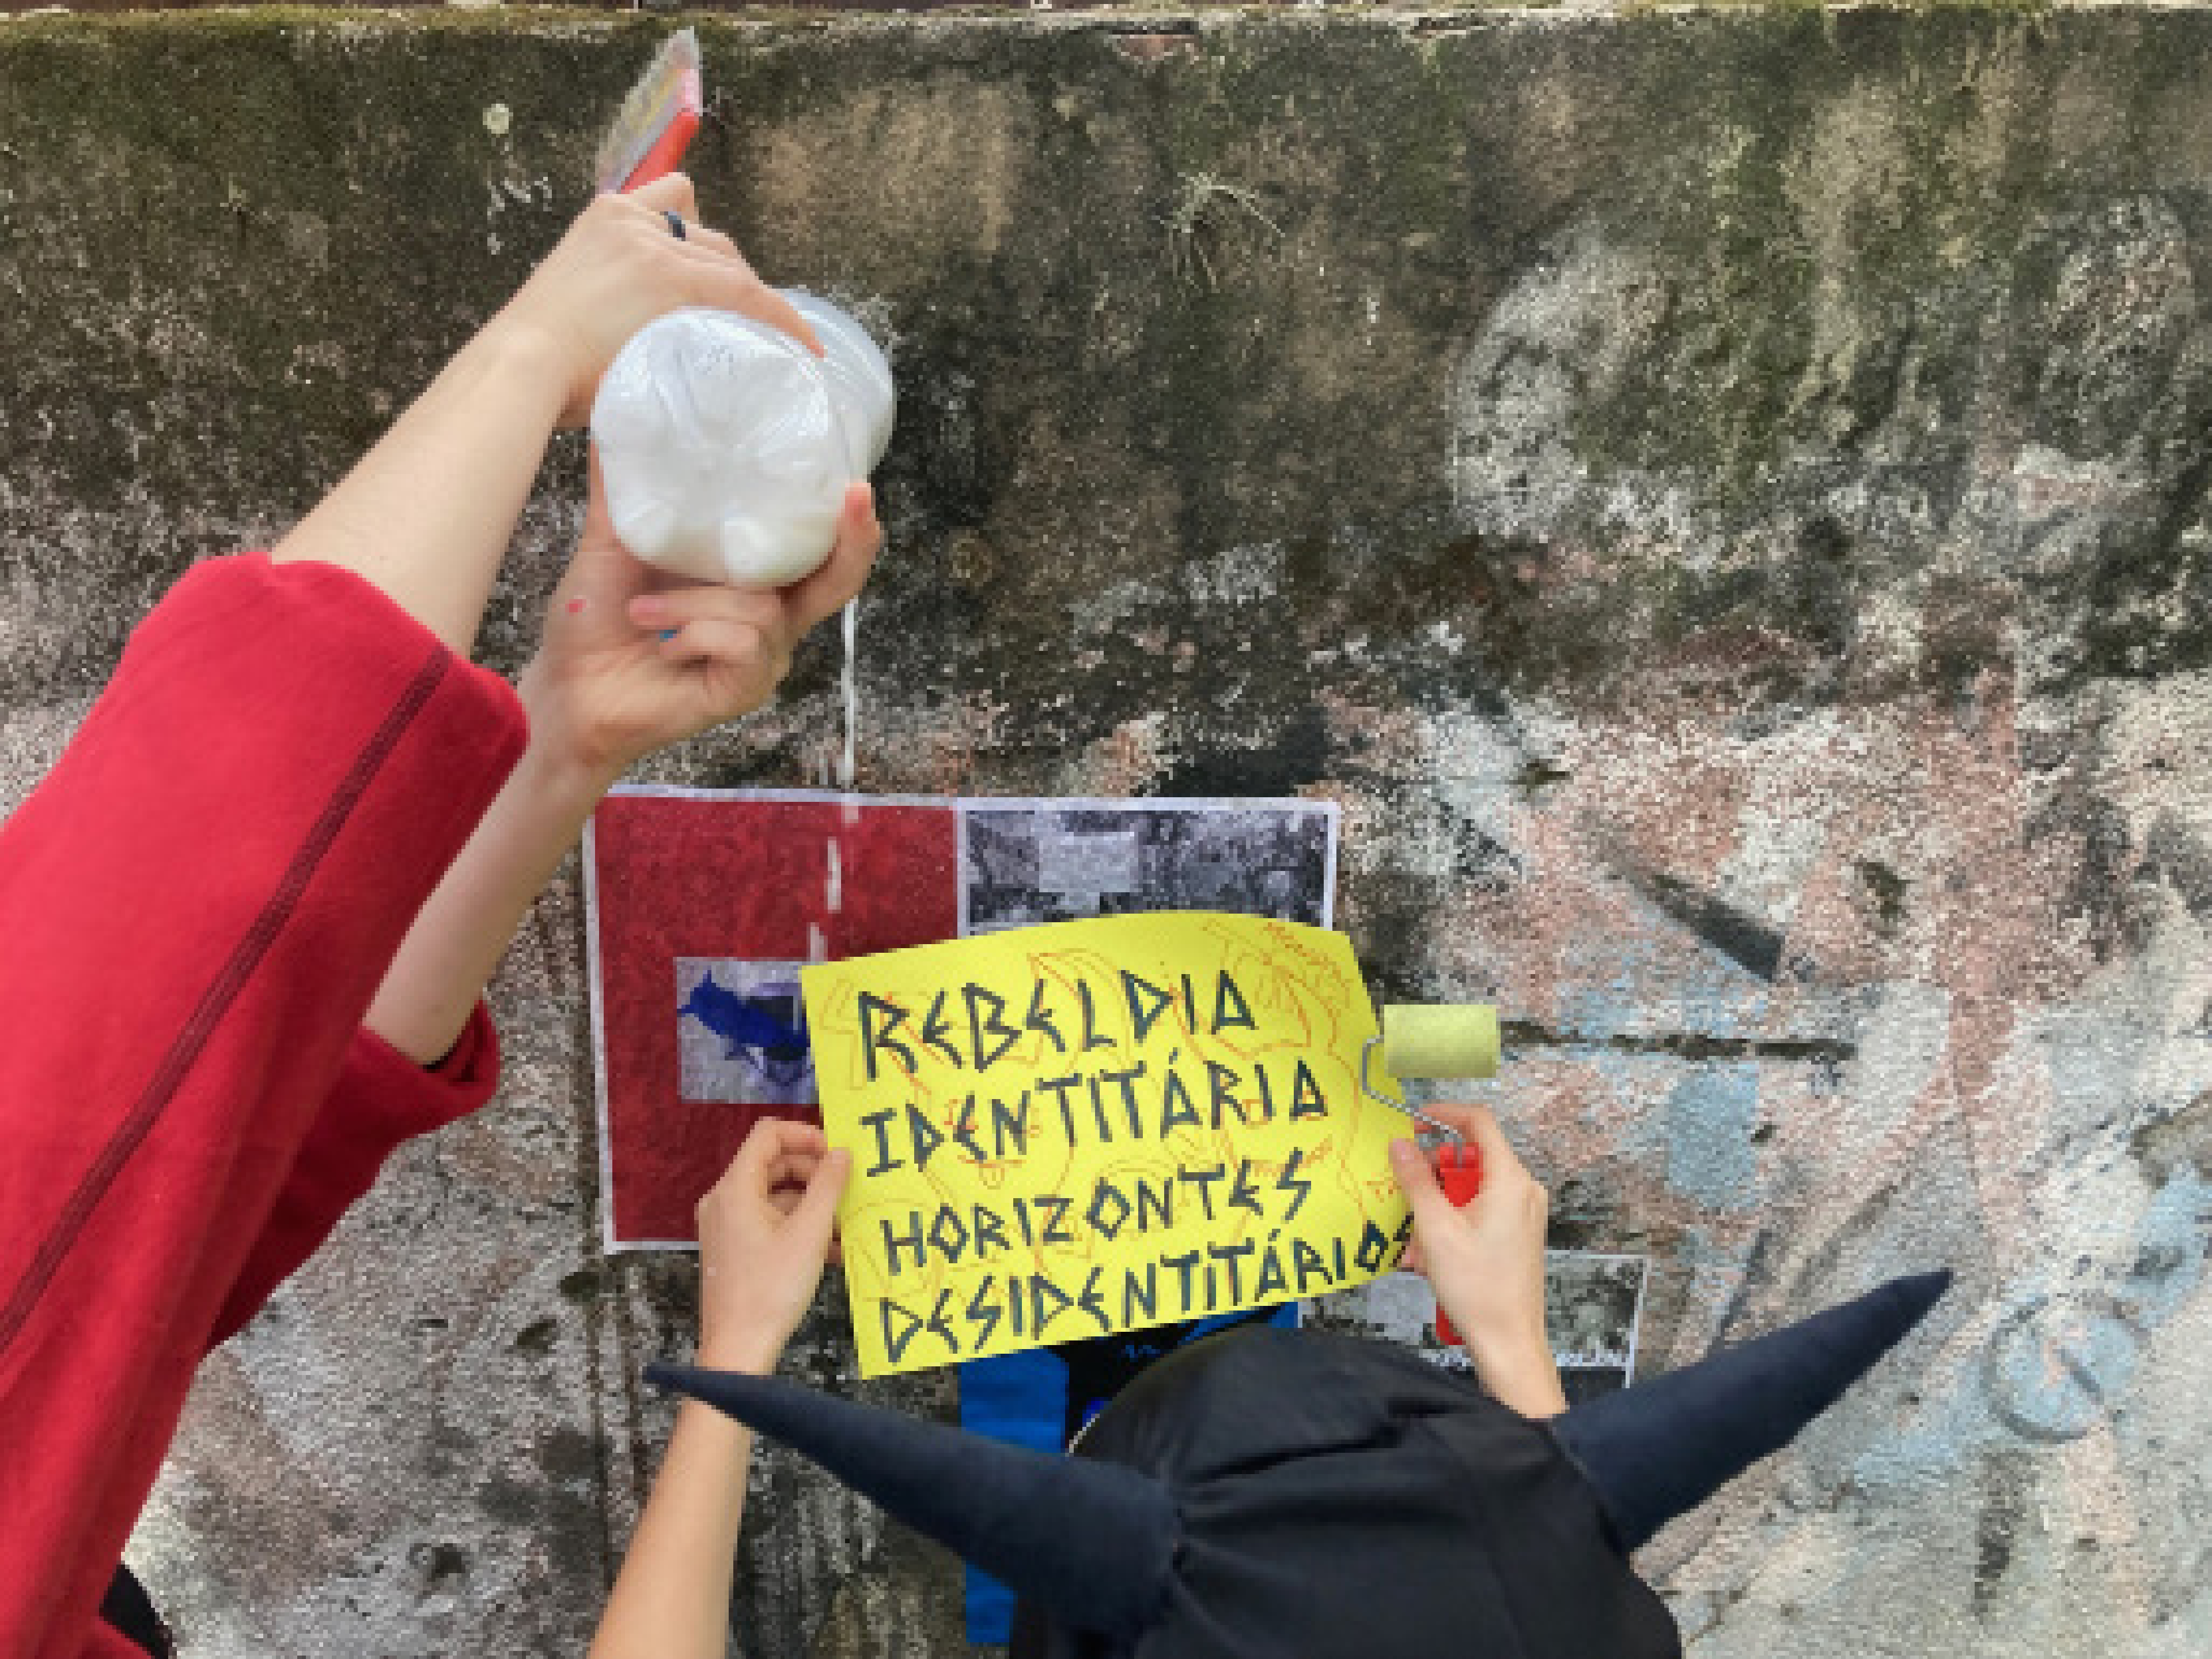 REBELDIA
IDENTITÁRIA
HORIZONTES
DESIDENTITÁRIOS